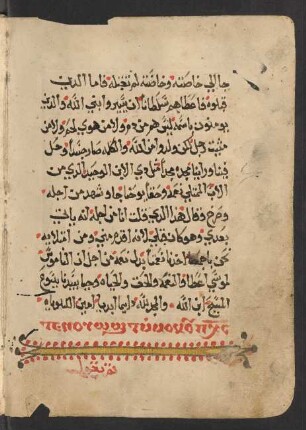 جا الي خاصته وخاصته لم تقبله فاما الذين
قبلوه فاعطاهم سلطانا ان يصيروا بني الله والذين
يومنون باسمه ليس هم من دم ولا من هوي لحم ولا من
مشيت رجل لكن ولدوا من الله والكلمه صار جسدا وحل
فينا وراينا مجده مجدا مثل الابن الوحيد الذي من
الاب الممتلي نعمه وحقا يوحنا جا وشهد من اجله
وصرخ وقال هذا الذي قلت انا من اجله انه ياتي
بعدي وهو كان قبلي لانه اقدم مني ومن امتلايه
نحن اخذنا نعمه بدل نعمه من اجل ان الناموس
بموسي اعطا والنعمه والحق والحياه بيسوع
المسيح ابن الله والمجد لله دايما ابدا امين